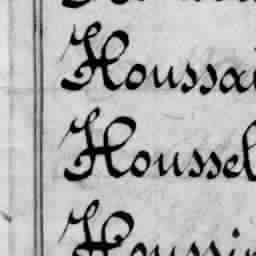 Houssai
Houssel
Houssin